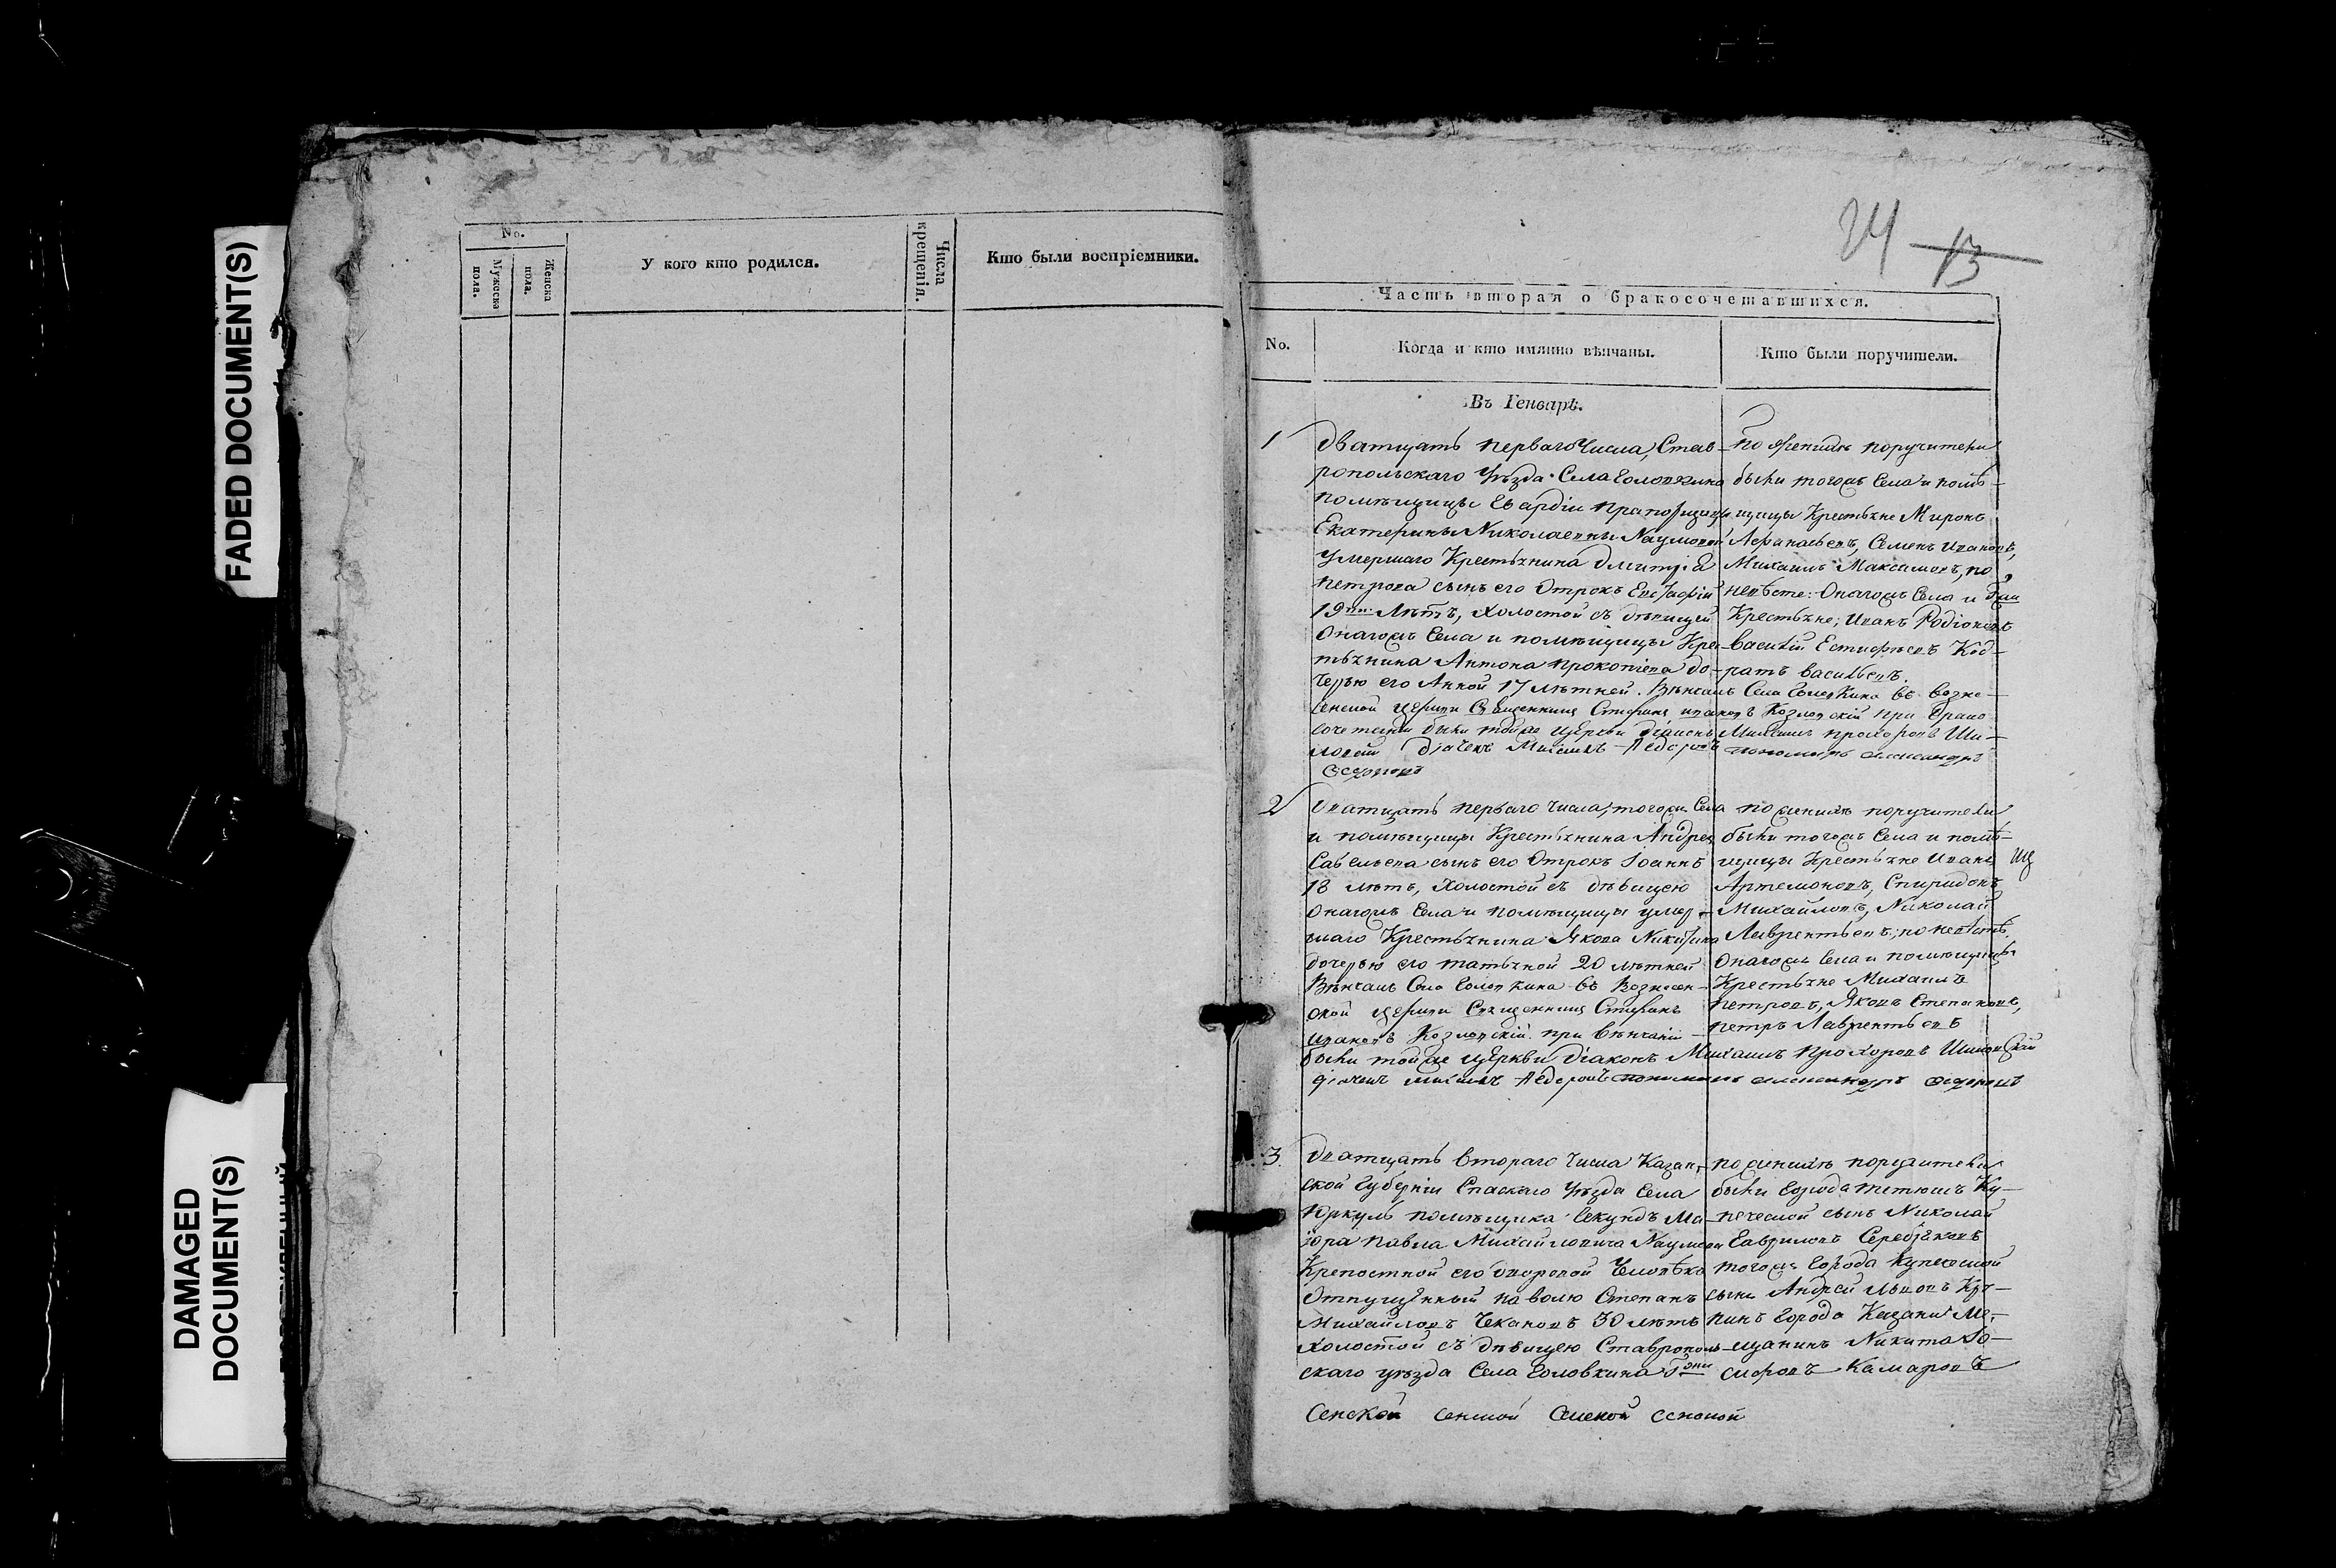 FADED DOCUMENT(S)
DAMAGED
DOCUMENT(S)
No.
Мужеска
пола.
Женска
пола.
У кого кто родился.
Числа
крещенія.
Кто были воспріемники.
24 13
Часть вторая о бракосочетавшихся.
No.
Когда и кто имянно вѣнчаны.
Кто были поручители.
Въ Генварѣ.
1
Дватцать перваго Числа, Став-
ропольскаго Уѣзда Села Головкина
помѣщицы Гвардіи Прапорщицы
Екатерины Николаевны Наумовой
Умершаго Крестьянина Дмитріа
Петрова сынъ его Отрокъ Евстафій
19ти Лѣтъ, Холостой съ дѣвицей
Онагожъ Села и помѣщицы Кре-
стьянина Антона Прокопіева до-
черью его Анной 17 лѣтней. Вѣнчалъ Села Головкина въ Возне-
сенской церкви Священникъ Стефанъ Ивановъ Козловскій при брако
сочетаніи были тойже Церкви Діаконъ Михаилъ Прохоровъ Ши-
Дьячекъ Михаилъ Ѳедоровъ пономарь Александръ
По женихѣ поручители
были тогожъ Села и помѣ-
щицы Крестьяне Миронъ
Аѳанасьевъ, Семенъ Ивановъ,
Михаилъ Максимовъ, по
невѣсте: Онагожъ Села и
Крестьяне; Иванъ Родіоновъ
Василій Естифѣевъ Код-
ратъ Васильевъ.
2
Дватцать перваго Числа, тогожъ Села
и помѣщицы Крестьянина Андрея
Савельева сынъ его Отрокъ Іоаннъ
18 лѣтъ, Холостой съ дѣвицею
Онагожъ Села и помѣщицы умер-
шаго Крестьянина Якова Никитина
дочерью его Татьяной 20 лѣтней
Вѣнчалъ Села Головкина въ Вознесен-
ской церкви Священникъ Стефанъ
Ивановъ Козловскій при вѣнчаніи
были тойже Церкви Діаконъ Михаилъ Прохоровъ
дьячекъ Михаилъ Ѳедоровъ пономарь Александръ
по женихѣ поручители
были тогожъ Села и помѣ-
щицы Крестьяне Иванъ
Артемоновъ, Спиридонъ
Михайловъ, Николай
Лаврентьевъ; по невѣстѣ
Онагожъ Села и помѣщицы
Крестьяне Михаилъ
Петровъ, Яковъ Степановъ,
Петръ Лаврентьевъ
3.
Дватцать втораго Числа Казан-
ской Губерніи Спаскаго Уѣзда Села
Юркуль помѣщика Секундъ Ма-
іора Павла Михайловича Наумова
Крепостной его дворовой Человѣкъ
Отпущенный на волю Степанъ
Михайловъ Чекановъ 30 лѣтъ
Холостой съ дѣвицею Ставрополь-
скаго уѣзда Села Головкина Гжи
по женихѣ поручители
были Города Тетюшъ Ку-
печеской сынъ Николай
Гавриловъ Серебряковъ
тогожъ Города Купеческой
сынъ Андрей Львовъ
Города Казани Ме-
щанинъ Никита Іо-
сифовъ Камаровъ
сенской сенской